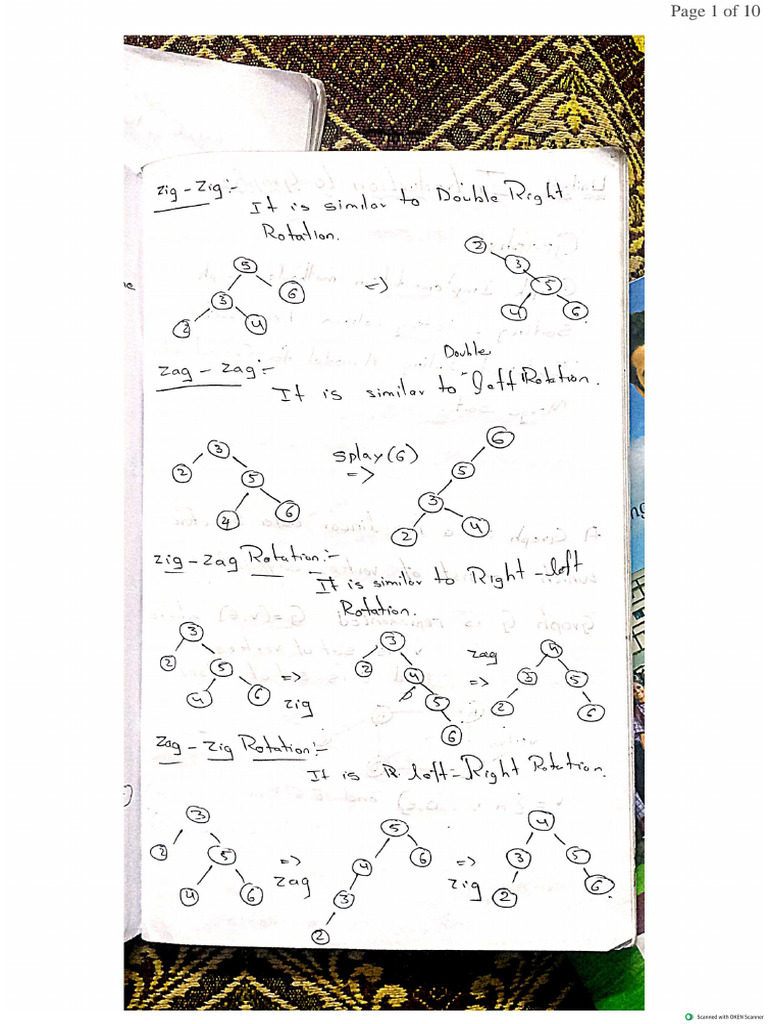 Page 1 of 10
Zig - Zig :-
It is similar to Double Right
Rotation.
5
3
6
2
4
=>
2
3
5
4
6
Zag - Zag :-
Double
It is similar to left Rotation.
3
2
5
4
6
Splay(6)
=>
6
5
3
2
4
Zig - Zag Rotation :-
It is similar to Right - left
Rotation.
3
2
5
4
6
=>
zig
3
2
4
5
6
zag
=>
4
3
5
2
6
Zag - Zig Rotation :-
It is R. left - Right Rotation.
3
2
5
4
6
=>
zag
5
4
6
3
2
=>
zig
4
3
5
2
6
Scanned with OKEN Scanner